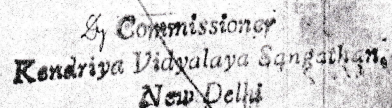 Dy Commissioner
Kendriya Vidyalaya Sangathan,
New Delhi